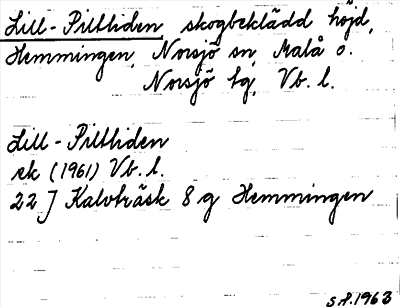 Lill-Pilttiden, skogbeklädd höjd,
Hemmingen, Norsjö sn, Malå o.
Norsjö tg, Vb. l.
Lill-Pilttiden
ek (1961) Vb. l.
22J Kalvträsk 8 g Hemmingen
1963